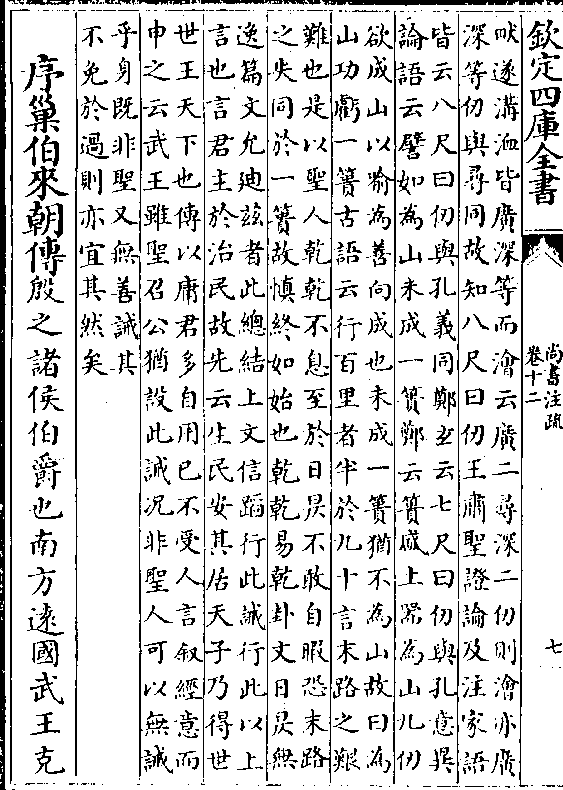 欽定四庫全書
尚書注疏
卷十二
七
畎遂溝洫皆廣深等而澮云廣二尋深二仞則澮亦廣
深等仞與尋同故知八尺曰仞王肅聖證論及注家語
皆云八尺曰仞與孔義同鄭玄云七尺曰仞與孔意異
論語云譬如為山未成一簣鄭云簣盛上器為山九仞
欲成山以喻為善向成也未成一簣猶不為山故曰為
山功虧一簣古語云行百里者半於九十言末路之艱
難也是以聖人乾乾不息至於日昃不敢自暇恐末路
之失同於一簣故慎終如始也乾乾易乾卦文日昃無
逸篇文允迪茲者此總結上文信蹈行此誡行此以上
言也言君主於治民故先云生民安其居天子乃得世
世王天下也傳以庸君多自用已不受人言叙經意而
申之云武王雖聖召公猶設此誡况非聖人可以無誡
乎身既非聖又無善誡其
不免於過則亦宜其然矣
序巢伯來朝傳殷之諸侯伯爵也南方遠國武王克